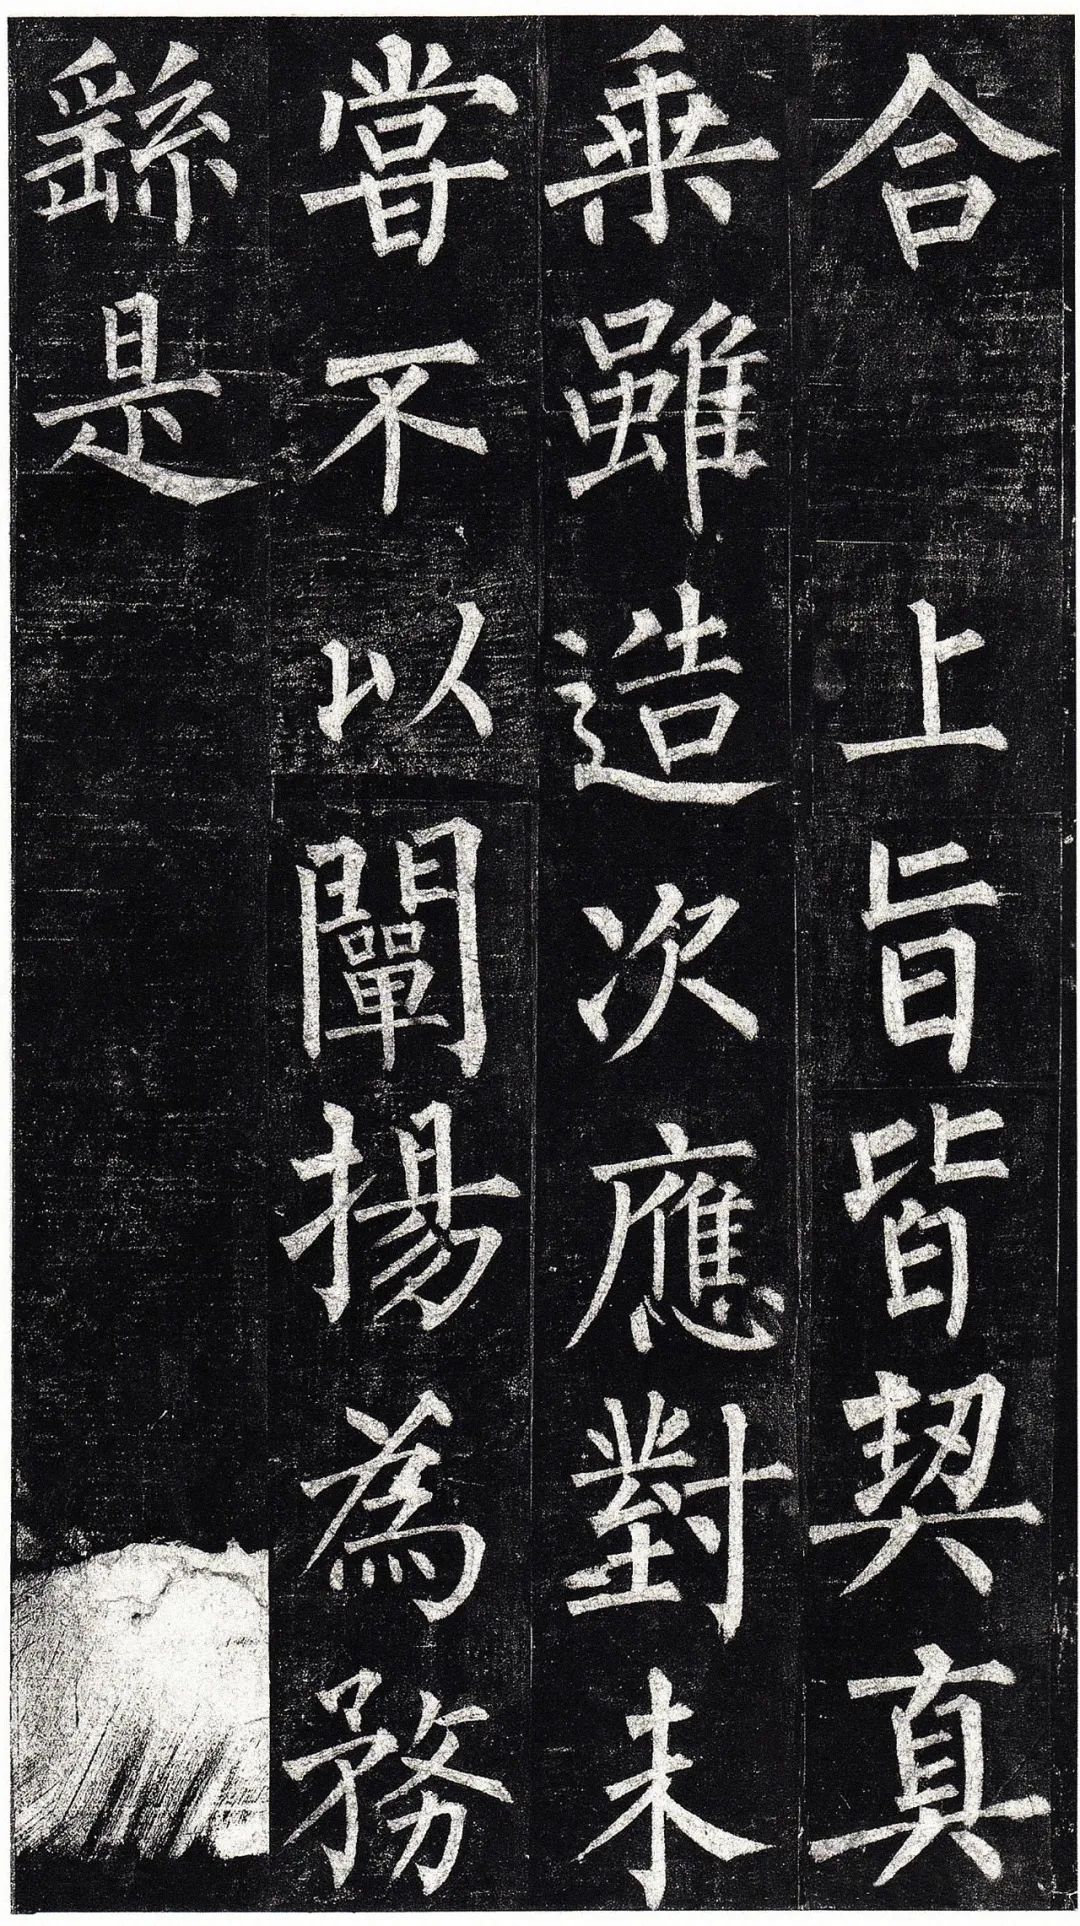 合 上旨皆契真
乗雖造次應對未
甞不以闡揚為務
繇是